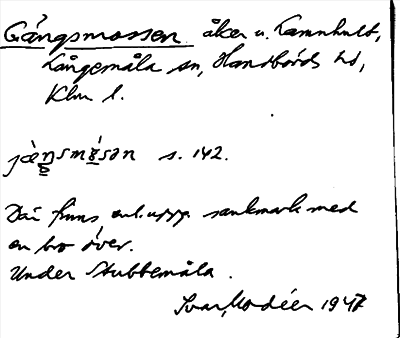 Gångsmossen åker u. Lamnhult,
Långemåla sn, Handbörds hd,
Klm l.
jàŋsmǫ̀sən s. 142.
Där finns enl. uppg. sankmark med
en bro över.
Under Stubbemåla.
Ivar Modéer 1947